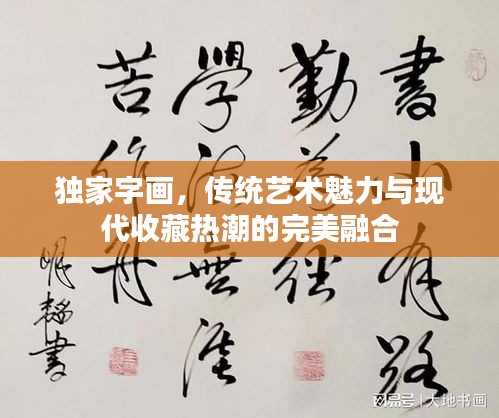 書山有路
勤為徑
學海無涯
苦作舟
明赣書
独家字画，传统艺术魅力与现
代收藏热潮的完美融合
搜狐号@大地书画